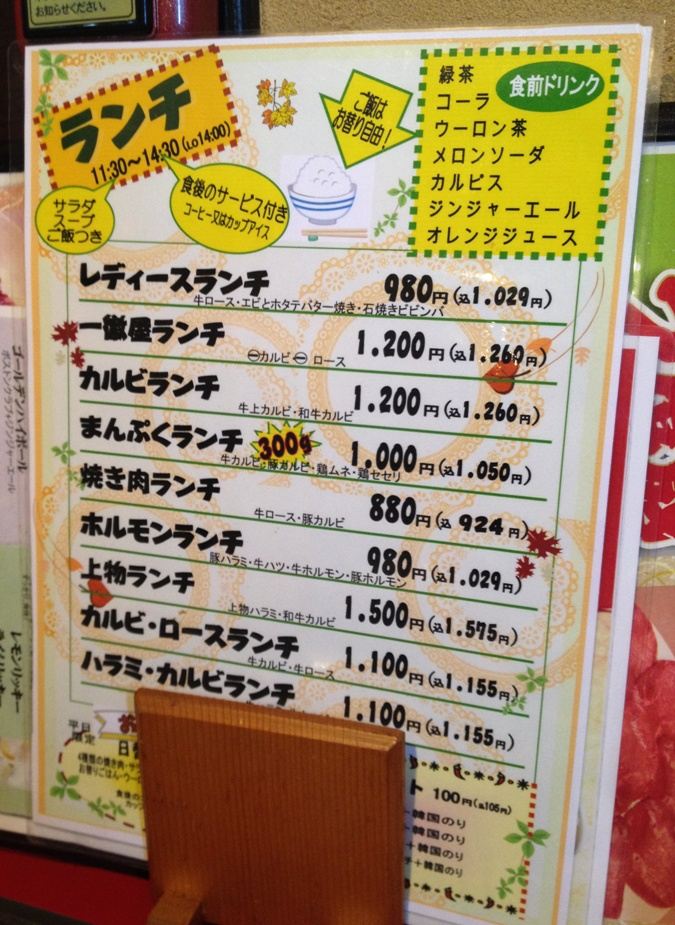 お知らせください。
ランチ
11:30～14:30(LO14:00)
サラダ
スープ
ご飯つき
食後のサービス付き
コーヒー又はカップアイス
ご飯は
お替り自由！
食前ドリンク
緑茶
コーラ
ウーロン茶
メロンソーダ
カルピス
ジンジャーエール
オレンジジュース
レディースランチ 980円(込1.029円)
牛ロース・エビとホタテバター焼き・石焼きビビンバ
一徹屋ランチ 1.200円(込1.260円)
㊀カルビ㊀ ロース
カルビランチ 1.200円(込1.260円)
牛上カルビ・和牛カルビ
まんぷくランチ 300g 1.000円(込1.050円)
牛カルビ・豚カルビ・鶏ムネ・鶏セセリ
焼き肉ランチ 880円(込 924円)
牛ロース・豚カルビ
ホルモンランチ 980円(込1.029円)
豚ハラミ・牛ハツ・牛ホルモン・豚ホルモン
上物ランチ 1.500円(込1.575円)
上物ハラミ・和牛カルビ
カルビ・ロースランチ 1.100円(込1.155円)
牛カルビ・牛ロース
ハラミ・カルビランチ 1.100円(込1.155円)
平日
限定
ト 100円(込105円)
韓国のり
韓国のり
＋韓国のり
チ＋韓国のり
ゴールデンハイボール
ボストンクラブ＋ジンジャーエール
レモンリッキー